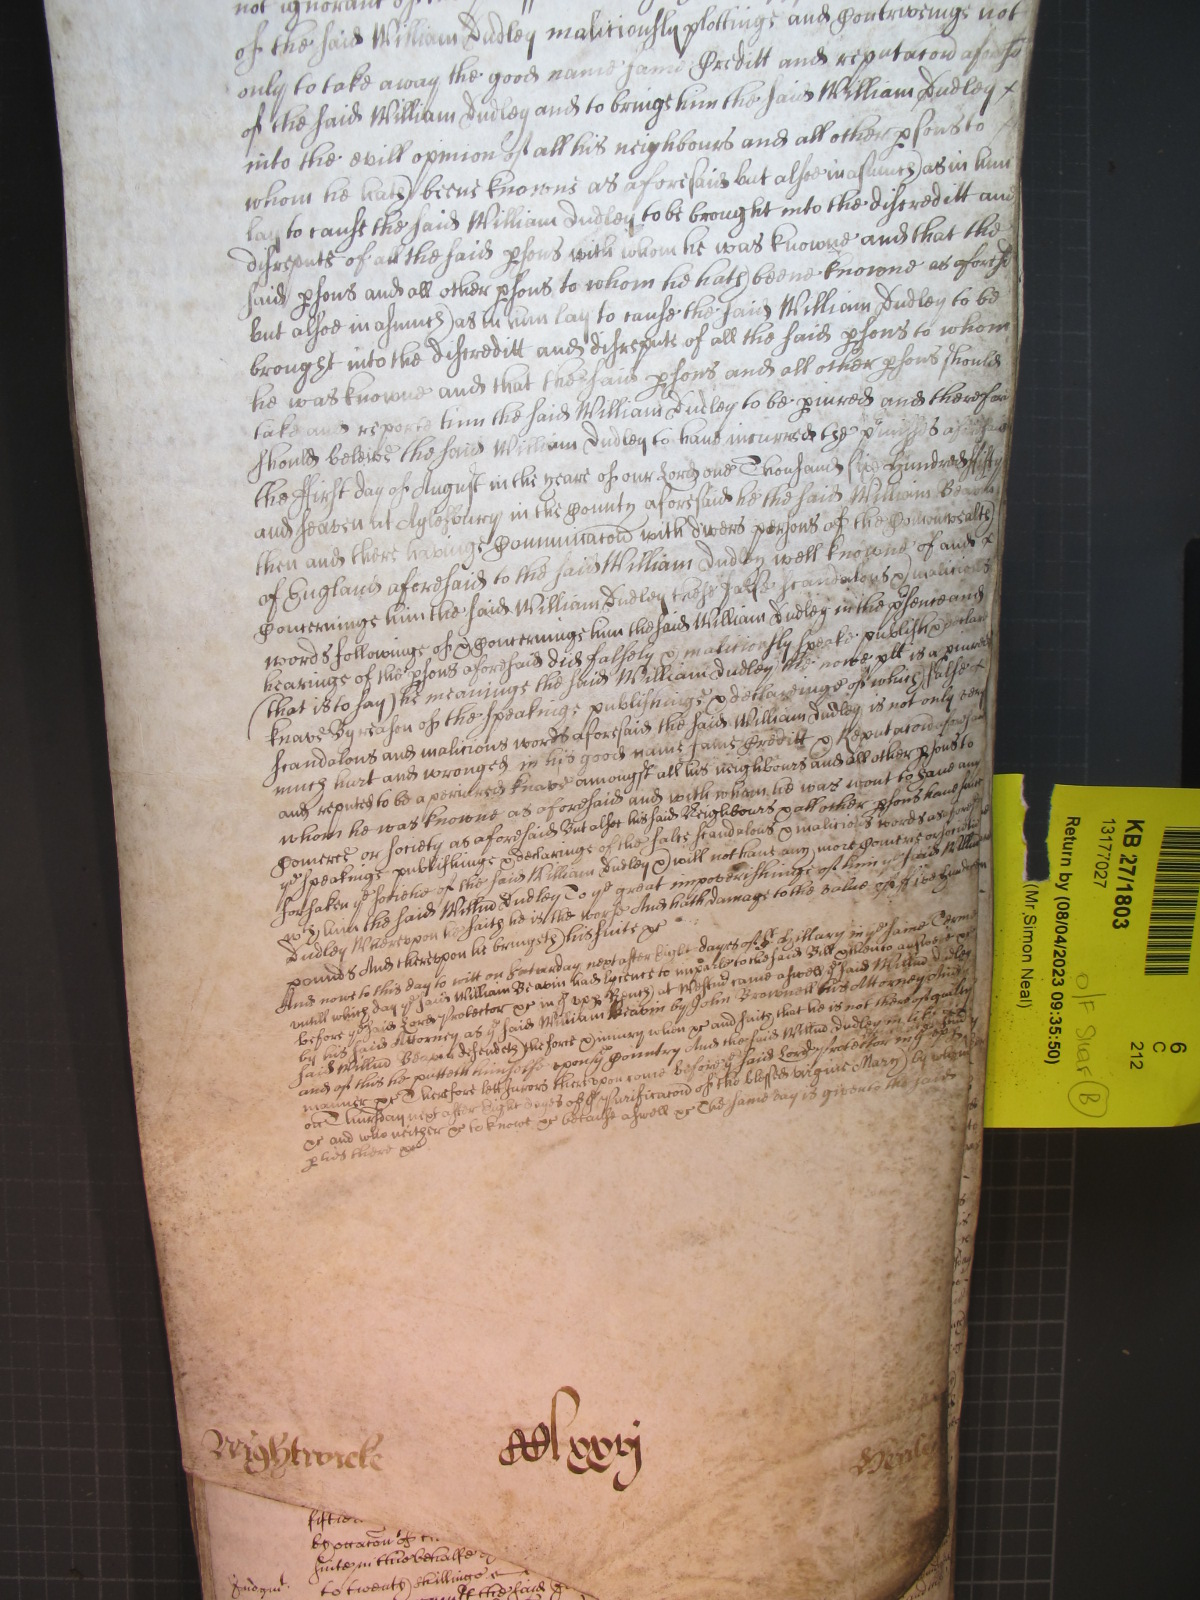 not ignorant of
of the said William Dudley maliciously plottinge and Contriveinge not
only to take away the good name fame Creditt and reputacon aforesd
of the said William Dudley and to bringe him the said William Dudley x
into the evill opinion of all his neighbours and all other psons to
whom he hath beene knowne as aforesaid but alsoe in asmuch as in him
lay to cause the said William Dudley to be brought into the discreditt and
disrepute of all the said psons with whom he was knowne and that the
said psons and all other psons to whom he hath beene knowne as aforesd
but alsoe in asmuch as in him lay to cause the said William Dudley to be
brought into the discreditt and disrepute of all the said psons to whom
he was knowne and that the said psons and all other psons should
take and repute him the said William Dudley to be piured and therefore
should beleive the said William Dudley to have incurred the
the ffirst day of August in the yeare of our Lord one Thousand six Hundred fifty
and seaven at Aylesbury in the County aforesaid he the said William Beavin
then and there haveinge Communicacon with divers persons of the Comonwealth
of England aforesaid to the said William Dudley well knowne of and x
Concerninge him the said William Dudley these false scandalous & malicious
words followinge of & Concerninge him the said William Dudley in the psence and
hearinge of the psons aforesaid did falsely & maliciously speake publish & declare
(that is to say) he meaninge the said William Dudley the nowe plt is a piured
knave By reason of the speakinge publishinge & declareinge of which false x
scandalous and malicious words aforesaid the said William Dudley is not only very
much hurt and wronged in his good name fame Creditt & Reputacon aforesaid
and reputed to be a periured knave amongst all his neighbours and all other psons to
whom he was knowne as aforesaid and with whom he was wont to have any
Comerce or society as aforesaid But alsoe his said Neighbours & all other psons have since
ye speakinge publishinge & declaringe of the false scandalous & malicious words as aforesd
forsaken ye societie of the said William Dudley & will not have any more Comerce or societie
wth him the said Willm Dudley To ye great impoverishinge of him ye said Willm
Dudley Whereupon he saith he is the worse And hath damage to the value of ffive hundred
pounds And thereupon he bringeth his suite &c
And nowe to this day to witt on Saturday next after Eight dayes of St Hillary in ye same Terme
untill which day ye said William Beavin had licence to imparle to the said Bill & then to answere &c
before ye said Lord Protector &c in ye vpp Bench at Westmr came aswell ye said Willm Dudley
by his said Attorney as ye said William Beavin by John Brownell his Attorney And ye
said Willm Beavin defendeth the force & iniury when &c and saith that he is not thereof guilty
and of this he putteth himselfe upon ye Country And the said Willm Dudley in like
manner &c Therefore lett Jurors thereupon come before ye said Lord Protector
on Thursday next after Eight dayes of ye Purificacon of the blessed virgine Mary by whom
&c and who neither &c to knowe &c because aswell &c The same day is given to the said
pties there &c
Wightwicke
CClxxij
fiftie
by occacon of
suite in this behalfe
to twenty shillings
Judgmt.